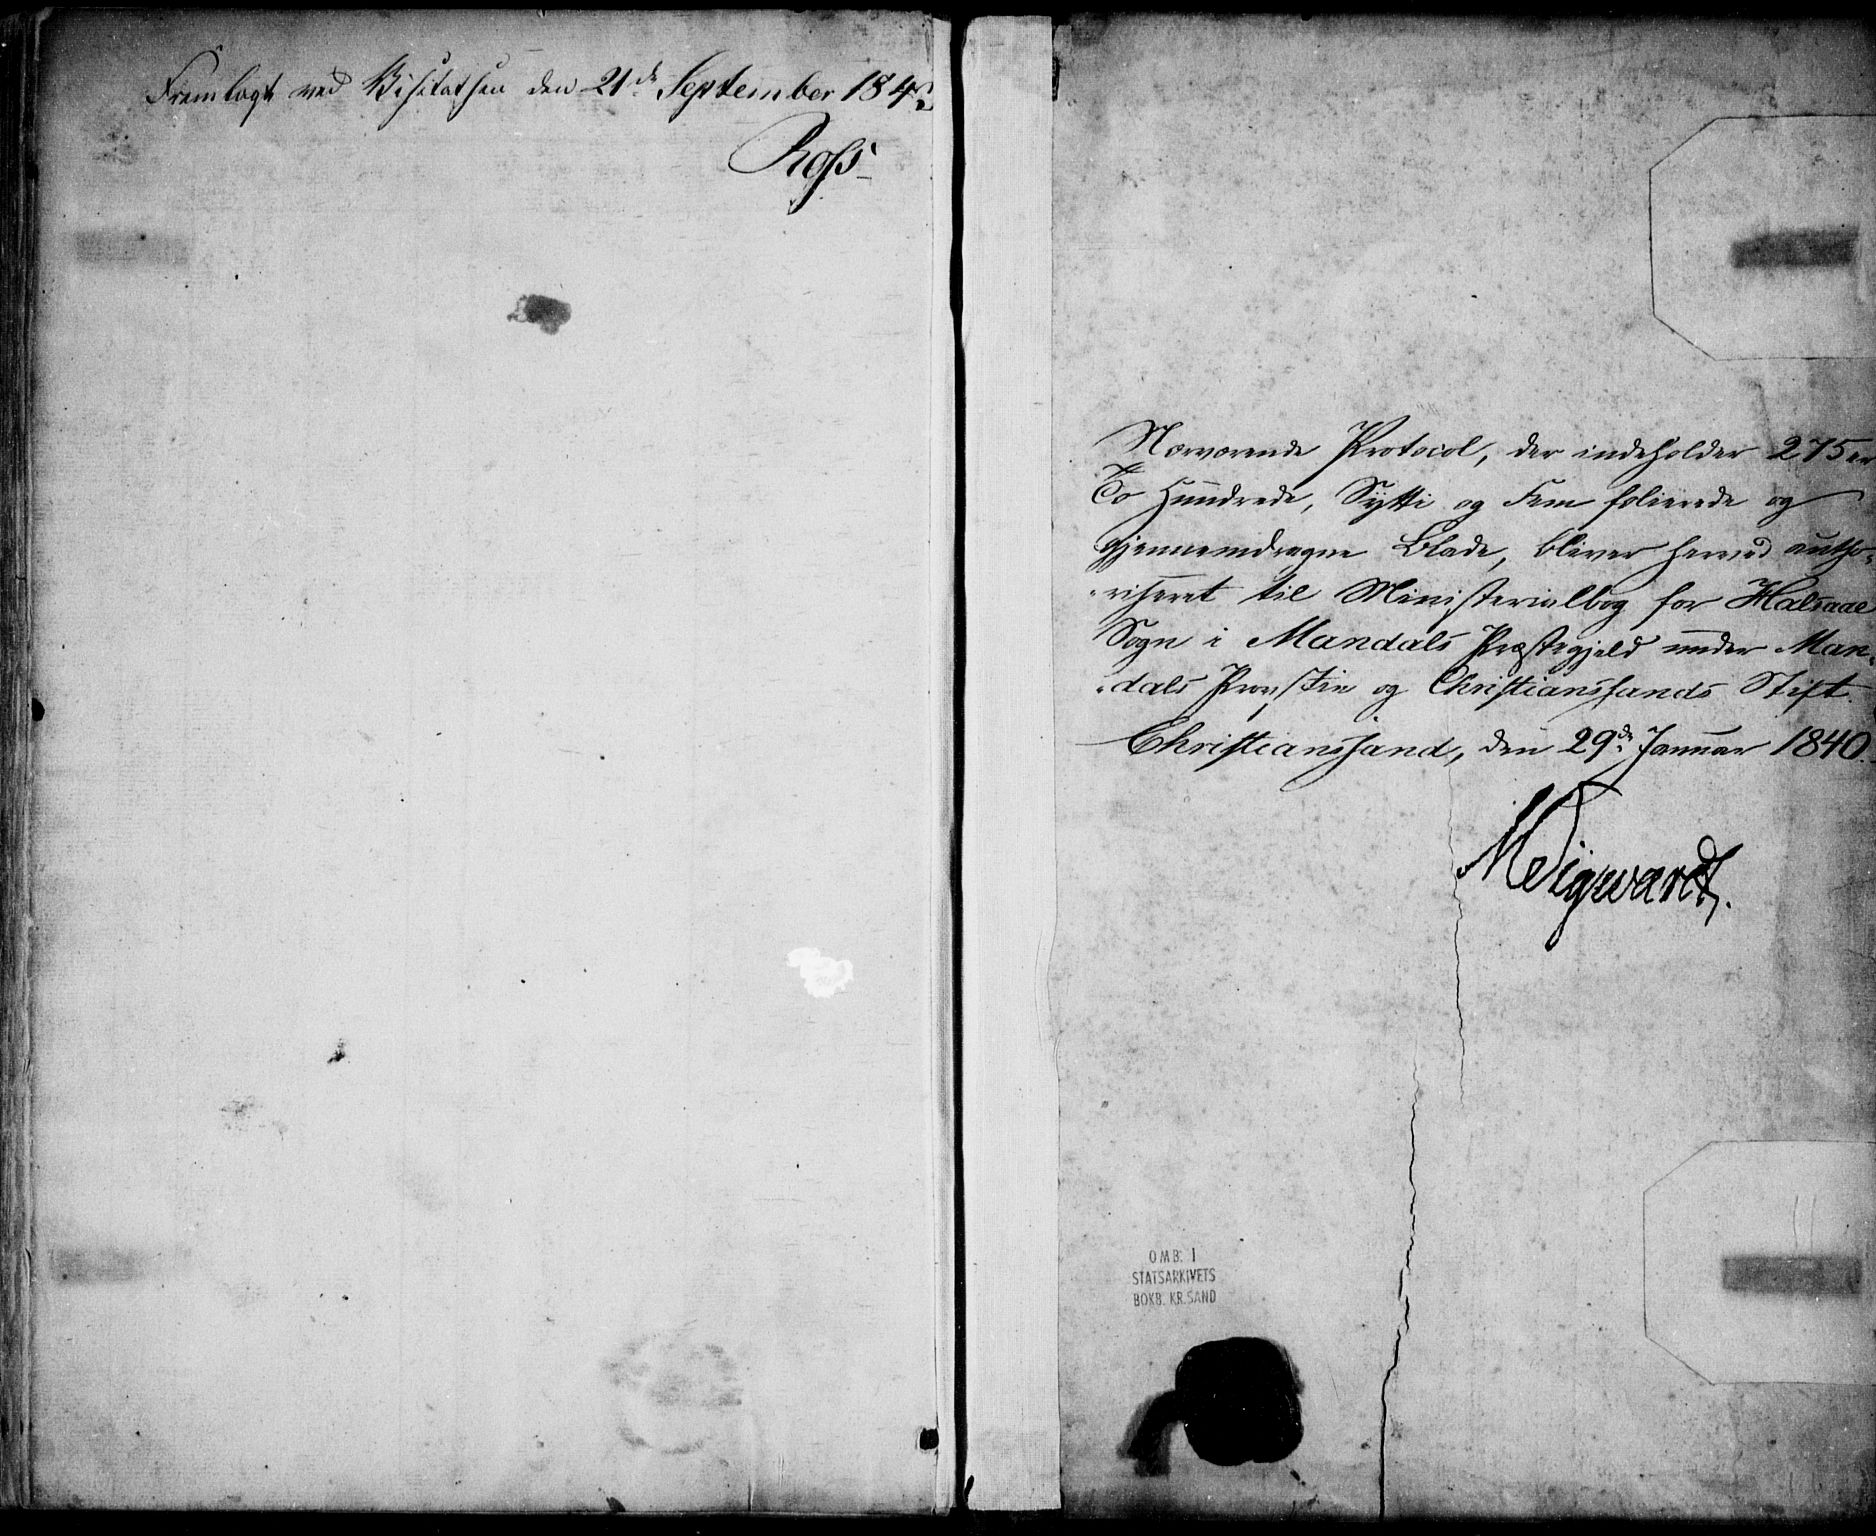 Fremlagt ved Visitatsen den 21de September 184
Ross
Nærværende Protocol, der indeholder 275 er
To Hundrede, Sytti og Fem folierede og
gjennemdragne Blade, bliver herved autho-
-riseret til Ministerialbog for Halsaae
Sogn i Mandals Præstegjeld under Man-
-dals Provstie og Christianssands Stift.
Christianssand, den 29de Januar 1840.
OMB. I
STATSARKIVETS
BOKB. KR.SAND